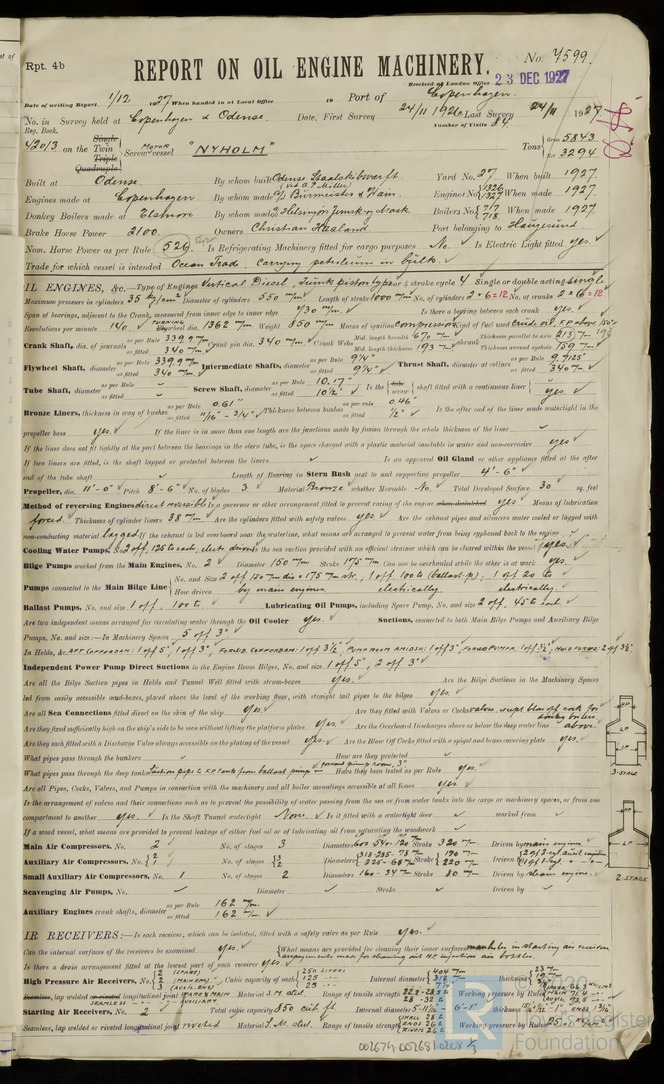 Rpt. 4b
REPORT ON OIL ENGINE MACHINERY.
No. 7599.
Received at London Office 23 DEC 1927
Date of writing Report 1/12 1927 When handed in at Local Office Port of Copenhagen.
No. in Survey held at Copenhagen & Odense. Date, First Survey 24/11 1926 Last Survey 24/11 1927
Reg. Book. Number of Visits 84
42013 on the Single Twin Triple Quadruple Screw vessel MOTOR "NYHOLM" Tons Gross 5843 Net 3294
Built at Odense By whom built Odense Staalskibsværft (v/d A.P. Möller) Yard No. 27 When built 1927
Engines made at Copenhagen By whom made Burmeister & Wain. Engines No. 1326 1327 When made 1927
Donkey Boilers made at Elsinore By whom made Boilers No. 717 718 When made 1927
Brake Horse Power 2100. Owners Christian Haaland Port belonging to Haugesund
Nom. Horse Power as per Rule 526 Is Refrigerating Machinery fitted for cargo purposes No. Is Electric Light fitted yes.
Trade for which vessel is intended Ocean Trade. Carrying petroleum in bulk.
IL ENGINES, &c.—Type of Engines Vertical Diesel, trunk piston type 2 or 4 stroke cycle 4 Single or double acting single
Maximum pressure in cylinders 35 kg/cm² Diameter of cylinders 550 m/m Length of stroke 1000 m/m No. of cylinders 2 × 6 = 12 No. of cranks 2 × 6 = 12
Span of bearings, adjacent to the Crank, measured from inner edge to inner edge 730 m/m Is there a bearing between each crank yes.
Revolutions per minute 140. Flywheel dia. 1362 m/m Weight 850 Means of ignition compression Kind of fuel used crude oil, F.P. above 150°F
Crank Shaft, dia. of journals as per Rule 339.9 m/m as fitted 340 m/m Crank pin dia. 340 m/m Crank Webs Mid. length breadth 670 m/m Mid. length thickness 193 m/m shrunk Thickness parallel to axis Thickness around eyehole 159 m/m
Flywheel Shaft, diameter as per Rule 339.9 m/m as fitted 340 m/m Intermediate Shafts, diameter as per Rule 9 1/4" as fitted 9 1/4" Thrust Shaft, diameter at collars as per Rule 9.7125" as fitted 340 m/m
Tube Shaft, diameter as per Rule as fitted Screw Shaft, diameter as per Rule 10.17" as fitted 10 1/2" Is the tube screw shaft fitted with a continuous liner yes.
Bronze Liners, thickness in way of bushes as per Rule 0.61" as fitted 11/16" - 3/4" Thickness between bushes as per rule 0.46" as fitted 1/2" Is the after end of the liner made watertight in the
propeller boss yes. If the liner is in more than one length are the junctions made by fusion through the whole thickness of the liner
If the liner does not fit tightly at the part between the bearings in the stern tube, is the space charged with a plastic material insoluble in water and non-corrosive yes
If two liners are fitted, is the shaft lapped or protected between the liners Is an approved Oil Gland or other appliance fitted at the after
end of the tube shaft Length of Bearing in Stern Bush next to and supporting propeller 4'-6"
Propeller, dia. 11'-0" Pitch 8'-6" No. of blades 3 Material Bronze whether Moveable No. Total Developed Surface 30 sq. feet
Method of reversing Engines direct reversible Is a governor or other arrangement fitted to prevent racing of the engine when declutched yes Means of lubrication
forced Thickness of cylinder liners 38 m/m Are the cylinders fitted with safety valves yes Are the exhaust pipes and silencers water cooled or lagged with
non-conducting material lagged If the exhaust is led overboard near the waterline, what means are arranged to prevent water being syphoned back to the engine
Cooling Water Pumps, No. 2 off, 125 t. each, electr. driven Is the sea suction provided with an efficient strainer which can be cleared within the vessel yes.
Bilge Pumps worked from the Main Engines, No. 2 Diameter 150 m/m Stroke 175 m/m Can one be overhauled while the other is at work yes.
Pumps connected to the Main Bilge Line No. and Size 2 off 150 m/m dia × 175 m/m str., 1 off 100 t (ballast-p.), 1 off 20 to
How driven by main engines electrically. electrically.
Ballast Pumps, No. and size 1 off, 100 t. Lubricating Oil Pumps, including Spare Pump, No. and size 2 off, 45 t each.
Are two independent means arranged for circulating water through the Oil Cooler yes. Suctions, connected to both Main Bilge Pumps and Auxiliary Bilge
Pumps, No. and size:—In Machinery Spaces 5 off 3"
In Holds, &c. AFT COFFERDAM: 1 off 5", 1 off 3", FORWD. COFFERDAM: 1 off 3 1/2", PUMP ROOM AMIDSH: 1 off 3",
Independent Power Pump Direct Suctions to the Engine Room Bilges, No. and size 1 off 5", 2 off 3"
Are all the Bilge Suction pipes in Holds and Tunnel Well fitted with strum-boxes yes. Are the Bilge Suctions in the Machinery Spaces
led from easily accessible mud-boxes, placed above the level of the working floor, with straight tail pipes to the bilges yes
Are all Sea Connections fitted direct on the skin of the ship yes. Are they fitted with Valves or Cocks valves, except blow off cock for donkey boilers
Are they fixed sufficiently high on the ship's side to be seen without lifting the platform plates yes. Are the Overboard Discharges above or below the deep water line above.
Are they each fitted with a Discharge Valve always accessible on the plating of the vessel yes. Are the Blow Off Cocks fitted with a spigot and brass covering plate yes.
What pipes pass through the bunkers How are they protected
What pipes pass through the deep tanks Suction pipe to F.P. tank from ballast pump in forward pump room, 3" Have they been tested as per Rule yes.
Are all Pipes, Cocks, Valves, and Pumps in connection with the machinery and all boiler mountings accessible at all times yes.
Is the arrangement of valves and their connections such as to prevent the possibility of water passing from the sea or from water tanks into the cargo or machinery spaces, or from one
compartment to another yes. Is the Shaft Tunnel watertight None. Is it fitted with a watertight door worked from
If a wood vessel, what means are provided to prevent leakage of either fuel oil or of lubricating oil from saturating the woodwork
Main Air Compressors, No. 2 No. of stages 3 Diameters 600 540 - 120 Stroke 320 m/m Driven by main engines.
Auxiliary Air Compressors, No. No. of stages 3 2 Diameters 318-285-78 m/m 225-68 m/m Stroke 190 m/m 220 m/m Driven by
Small Auxiliary Air Compressors, No. 1 No. of stages 2 Diameters 160 - 34 m/m Stroke 80 m/m Driven by steam engine.
Scavenging Air Pumps, No. Diameter Stroke Driven by
Auxiliary Engines crank shafts, diameter as per Rule 162 m/m as fitted 162 m/m
IR RECEIVERS:—Is each receiver, which can be isolated, fitted with a safety valve as per Rule yes.
Can the internal surfaces of the receivers be examined yes. What means are provided for cleaning their inner surfaces manholes in starting air receivers
arrangements made for cleaning out HP injection air bottles.
Is there a drain arrangement fitted at the lowest part of each receiver yes
High Pressure Air Receivers, No. 2 (SPARE) 2 (MAIN ENG) Cubic capacity of each 250 LITERS 125 Internal diameter 404 m/m thickness 23 m/m
Seamless, lap welded or riveted longitudinal joint Material S.M. steel. Range of tensile strength 28 - 32 Working pressure by Rules
Starting Air Receivers, No. 2 Total cubic capacity 850 cub ft Internal diameter thickness
Seamless, lap welded or riveted longitudinal joint riveted. Material S.M. steel. Range of tensile strength Working pressure by Rules
3-STAGE
2 STAGE
© 2020
Lloyd's Register
Foundation
002674-002681-0208 1/2